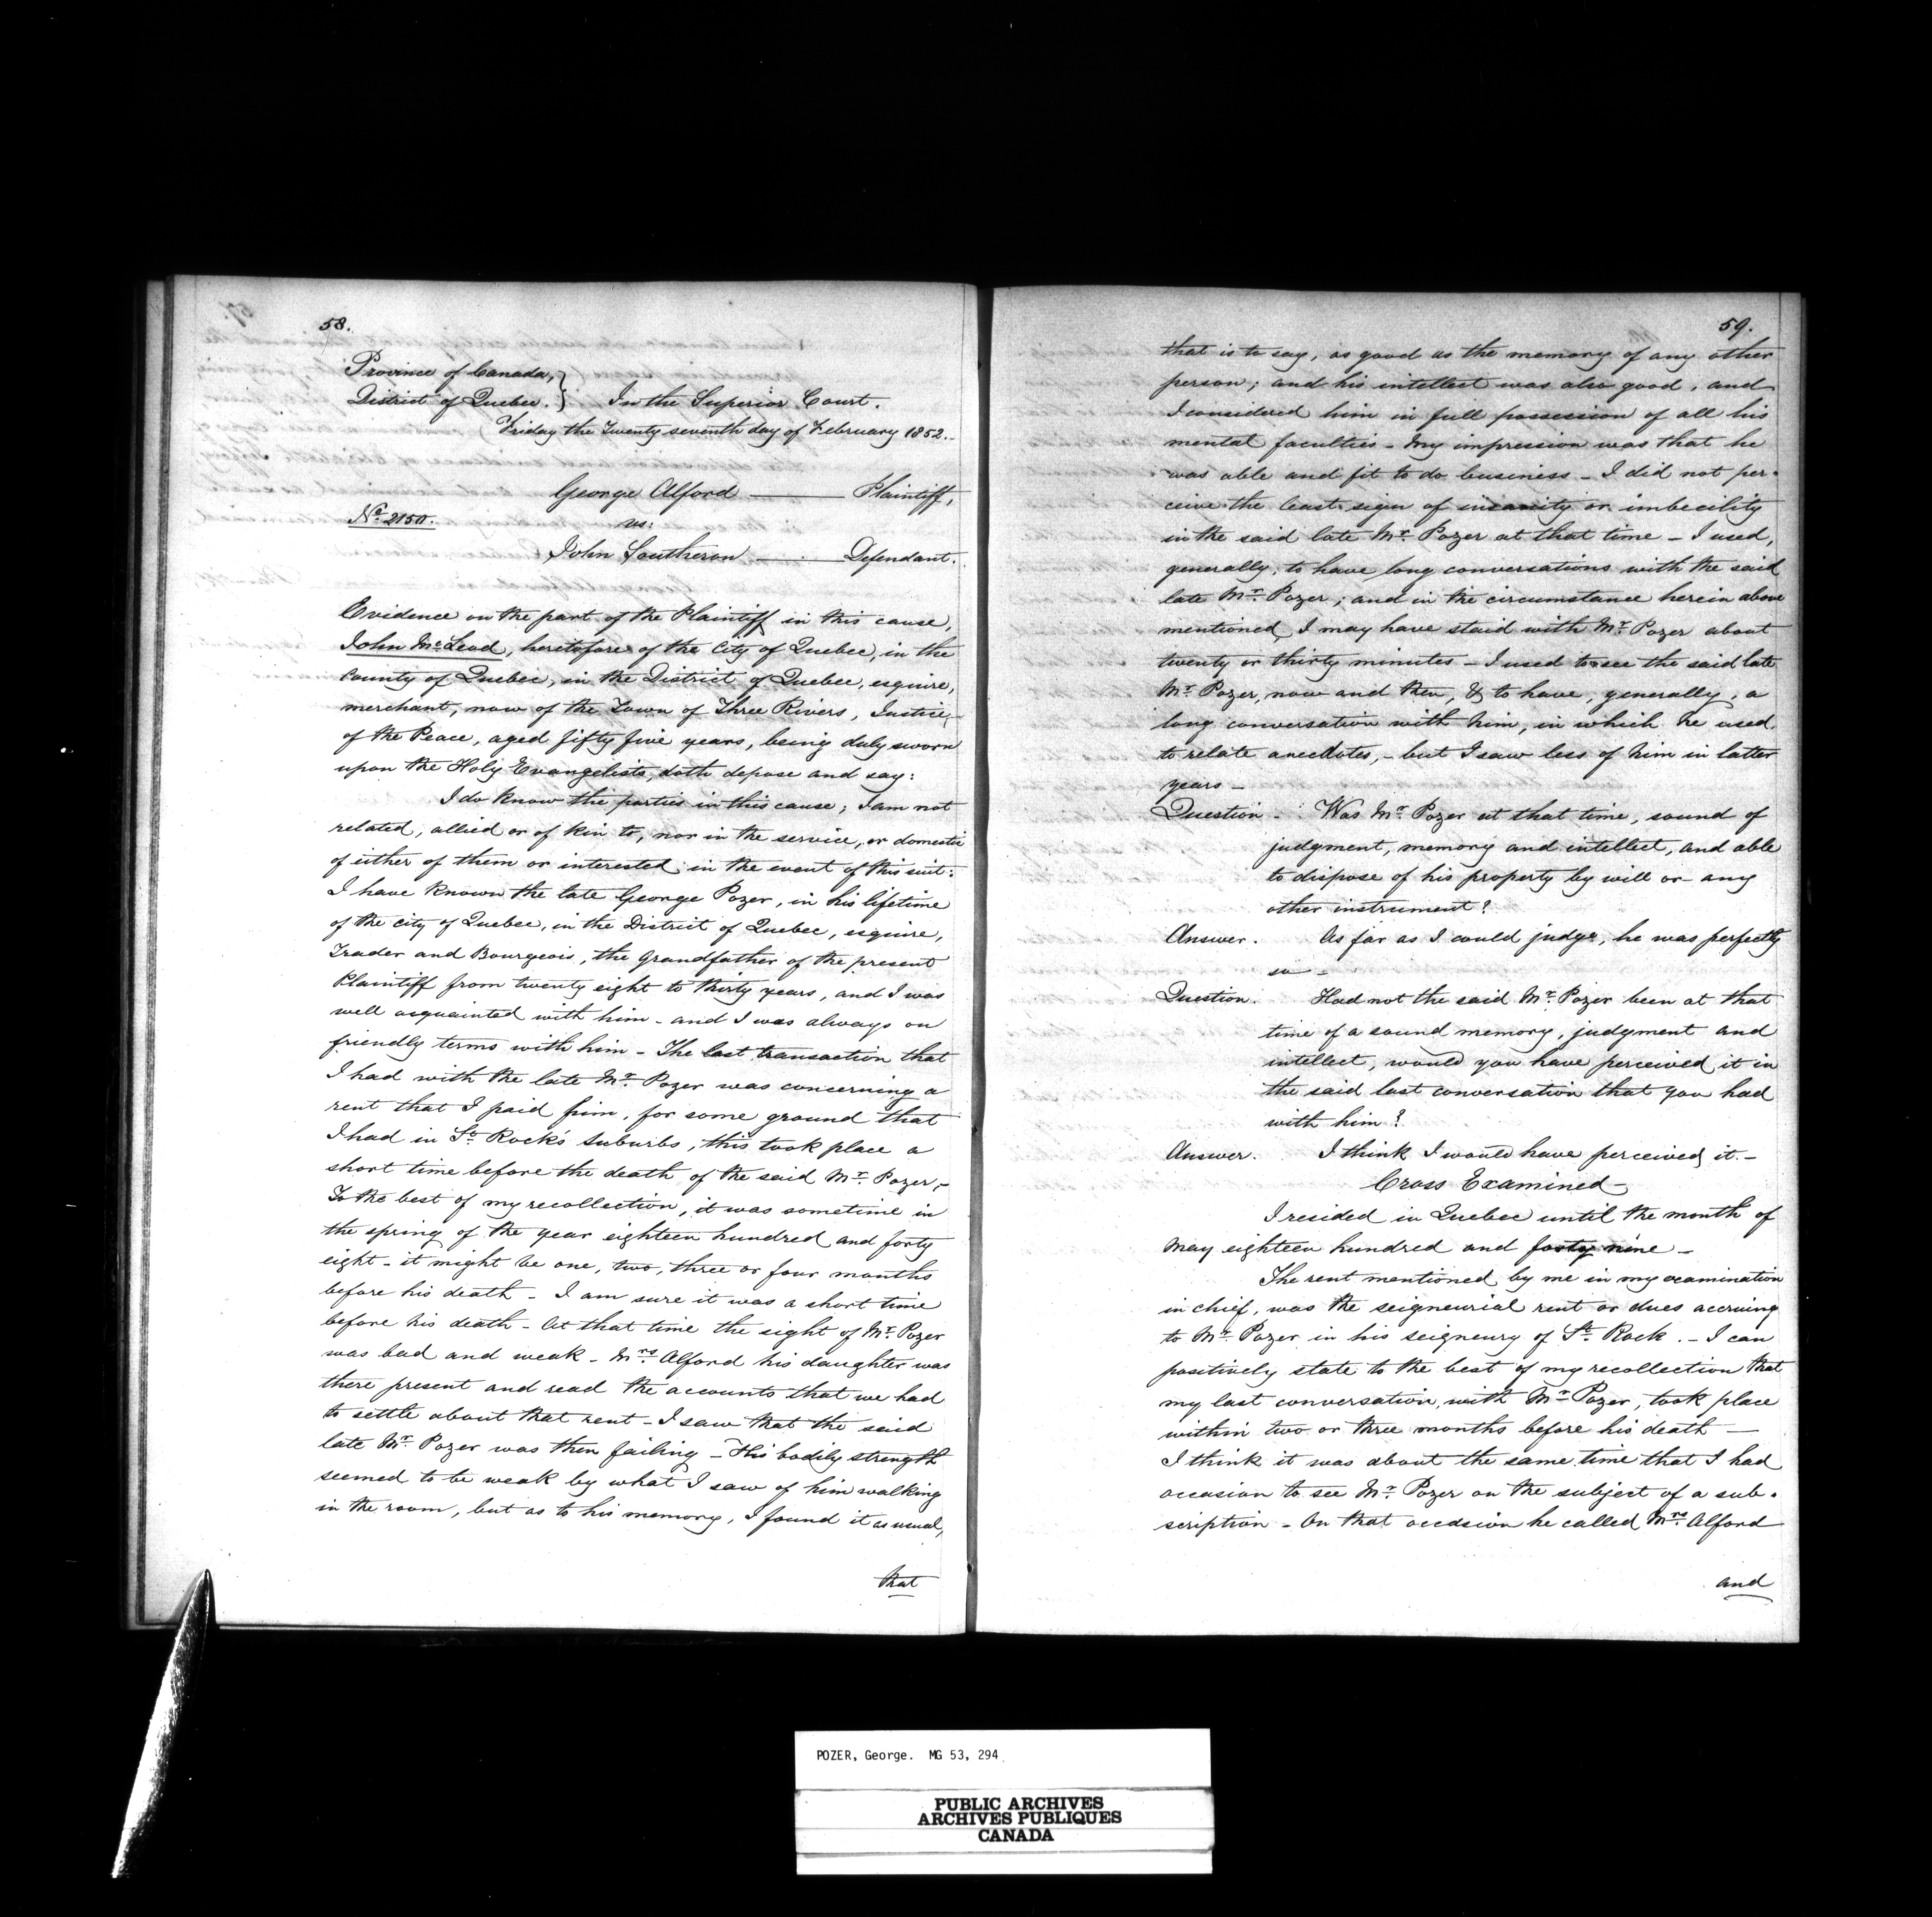 58.
Province of Canada, }
District of Quebec. } In the Superior Court.
Friday the Twenty seventh day of February 1852.-
George Alford ——— Plaintiff,
No. 2150. vs:
John Southeron ——— Defendant.
Evidence on the part of the Plaintiff in this cause,
John McLeod, heretofore of the City of Quebec, in the
County of Quebec, in the District of Quebec, esquire,
merchant, now of the Town of Three Rivers, Justice
of the Peace, aged fifty five years, being duly sworn
upon the Holy Evangelists, doth depose and say:
I do know the parties in this cause; I am not
related, allied or of kin to, nor in the service, or domestic
of either of them or interested in the event of this suit.
I have known the late George Pozer, in his lifetime
of the city of Quebec, in the District of Quebec, esquire,
Trader and Bourgeois, the Grandfather of the present
Plaintiff from twenty eight to thirty years, and I was
well acquainted with him - and I was always on
friendly terms with him - The last transaction that
I had with the late Mr. Pozer was concerning a
rent that I paid him, for some ground that
I had in St. Rock's suburbs, this took place a
short time before the death of the said Mr. Pozer,-
To the best of my recollection, it was sometime in
the spring of the year eighteen hundred and forty
eight - it might be one, two, three or four months
before his death - I am sure it was a short time
before his death - At that time the sight of Mr. Pozer
was bad and weak - Mrs Alford his daughter was
there present and read the accounts that we had
to settle about that rent - I saw that the said
late Mr. Pozer was then failing - His bodily strength
seemed to be weak by what I saw of him walking
in the room, but as to his memory, I found it as usual,
that
59.
that is to say, as good as the memory of any other
person; and his intellect was also good, and
I considered him in full possession of all his
mental faculties - my impression was that he
was able and fit to do business - I did not per-
ceive the least sign of insanity or imbecility
in the said late Mr. Pozer at that time - I used,
generally, to have long conversations with the said
late Mr. Pozer; and in the circumstance herein above
mentioned I may have staid with Mr. Pozer about
twenty or thirty minutes - I used to see the said late
Mr. Pozer, now and then, & to have, generally, a
long conversation with him, in which he used
to relate anecdotes, - but I saw less of him in latter
years -
Question - Was Mr. Pozer at that time, sound of
judgment, memory and intellect, and able
to dispose of his property by will or any
other instrument?
Answer. As far as I could judge, he was perfectly
so -
Question. Had not the said Mr. Pozer been at that
time of a sound memory, judgment and
intellect, would you have perceived it in
the said last conversation that you had
with him?
Answer. I think I would have perceived it. -
Cross Examined -
I resided in Quebec until the month of
May eighteen hundred and forty nine -
The rent mentioned by me in my examination
in chief, was the seigneurial rent or dues accruing
to Mr. Pozer in his seigneury of St. Rock. - I can
positively state to the best of my recollection that
my last conversation with Mr. Pozer, took place
within two or three months before his death —
I think it was about the same time that I had
occasion to see Mr. Pozer on the subject of a sub-
scription - On that occasion he called Mrs Alford
and
POZER, George. MG 53, 294
PUBLIC ARCHIVES
ARCHIVES PUBLIQUES
CANADA